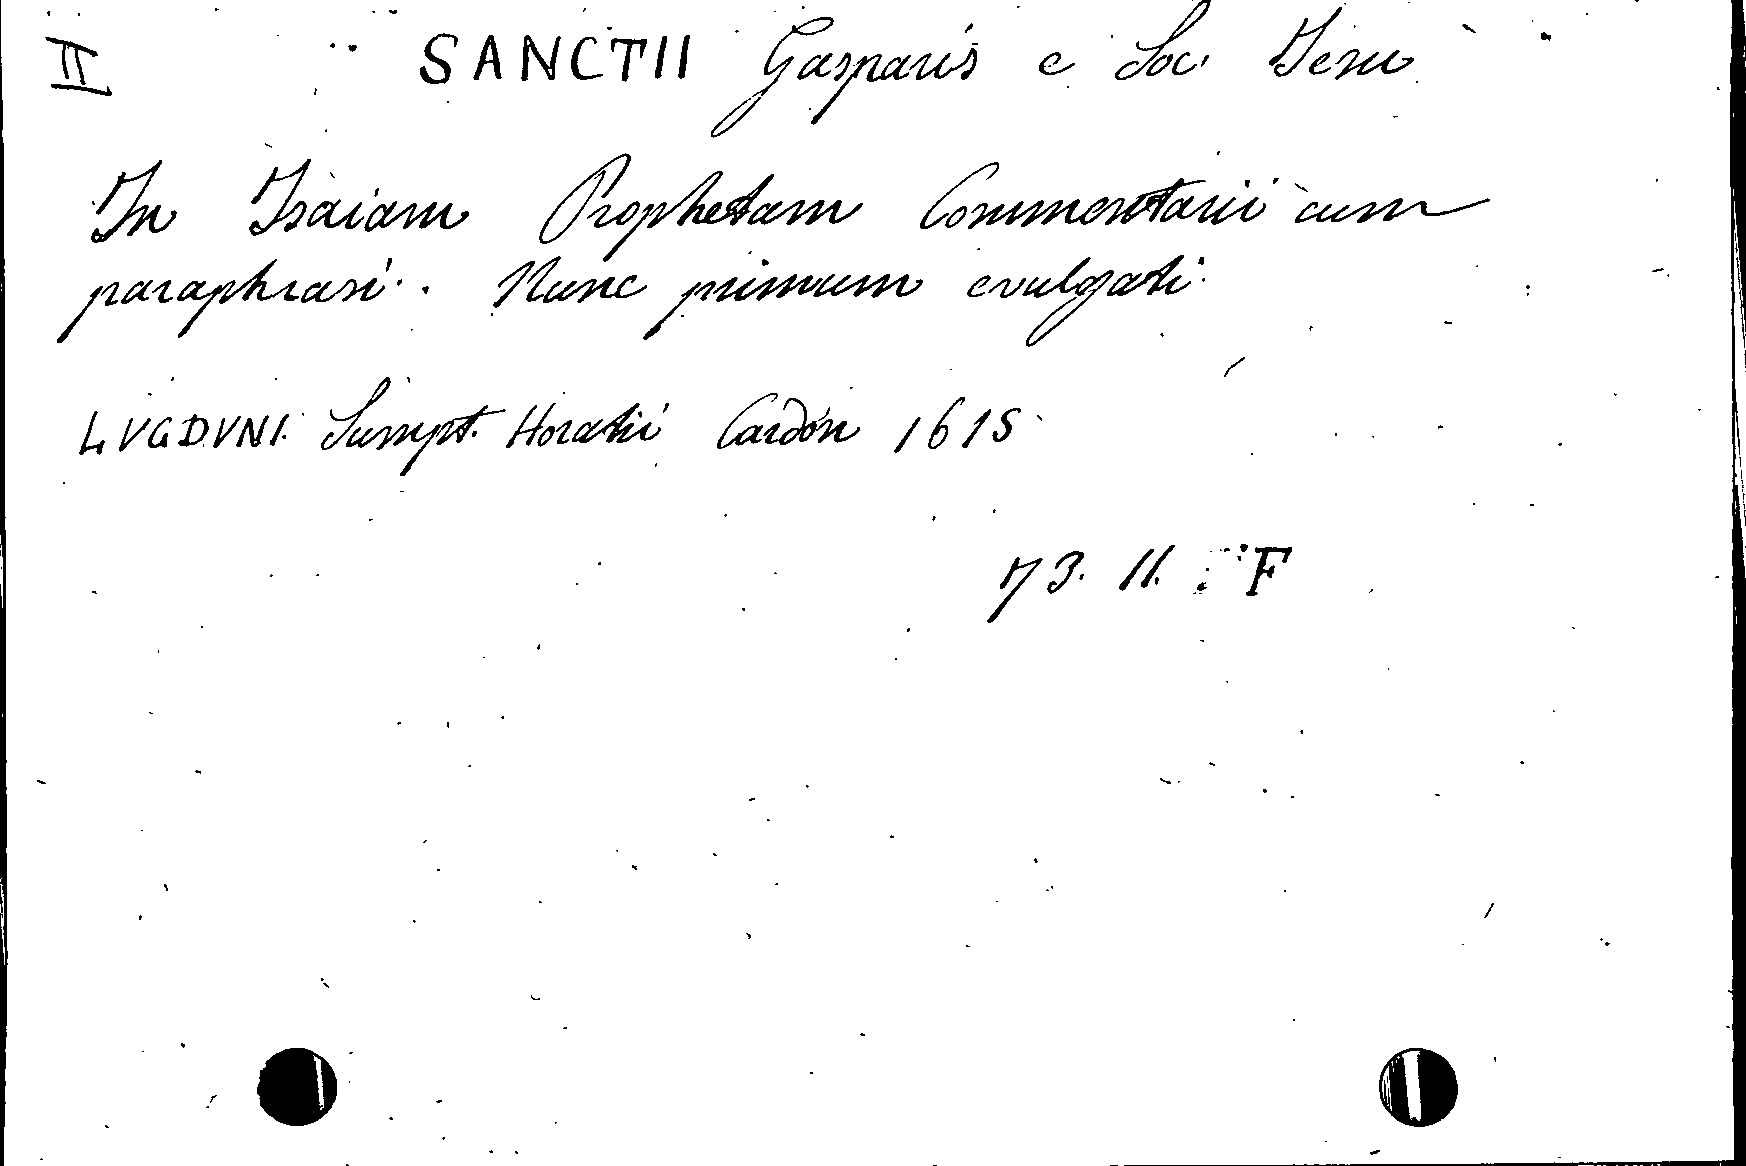 II SANCTII Gasparis e Soc. Iesu
In Isaiam Prophetam Commentarii cum
paraphrasi. Nunc primum evulgati
LVGDVNI. Sumpt. Horatii Cardon 1615
73. 11. F